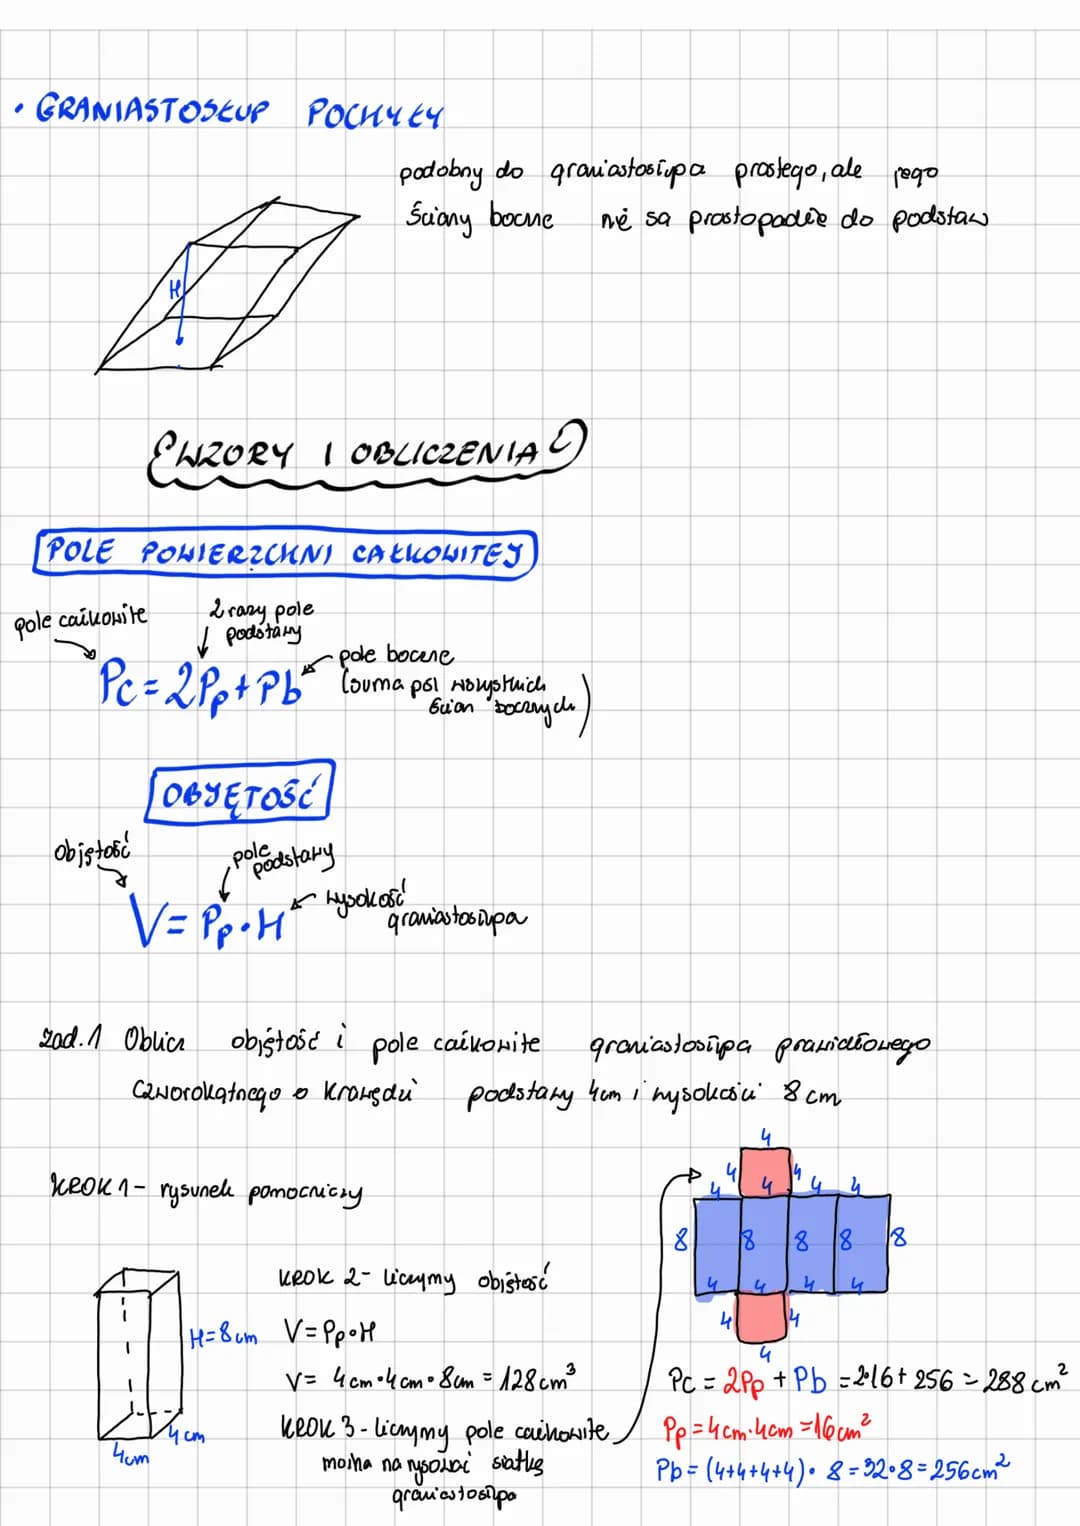 • GRANIASTOSŁUP POCHYŁY
podobny do graniastosłupa prostego, ale jego
ściany boczne nie są prostopadłe do podstaw
H
WZORY I OBLICZENIA
POLE POWIERZCHNI CAŁKOWITEJ
pole całkowite
2 razy pole
podstawy
pole boczne
(suma pól wszystkich
ścian bocznych)
Pc = 2Pp + Pb
OBJĘTOŚĆ
objętość
pole
podstawy
wysokość
graniastosłupa
V = Pp • H
zad. 1 Oblicz objętość i pole całkowite graniastosłupa prawidłowego
czworokątnego o krawędzi podstawy 4cm i wysokości 8 cm
KROK 1 - rysunek pomocniczy
4
4 4
4 4 4 4
8 8 8 8 8
4 4 4 4
4 4
4
KROK 2 - liczymy objętość
H = 8 cm
V = Pp • H
V = 4 cm • 4 cm • 8 cm = 128 cm³
4 cm
4 cm
KROK 3 - liczymy pole całkowite
można narysować siatkę
graniastosłupa
Pc = 2Pp + Pb = 2•16 + 256 = 288 cm²
Pp = 4 cm • 4 cm = 16 cm²
Pb = (4+4+4+4) • 8 = 32 • 8 = 256 cm²